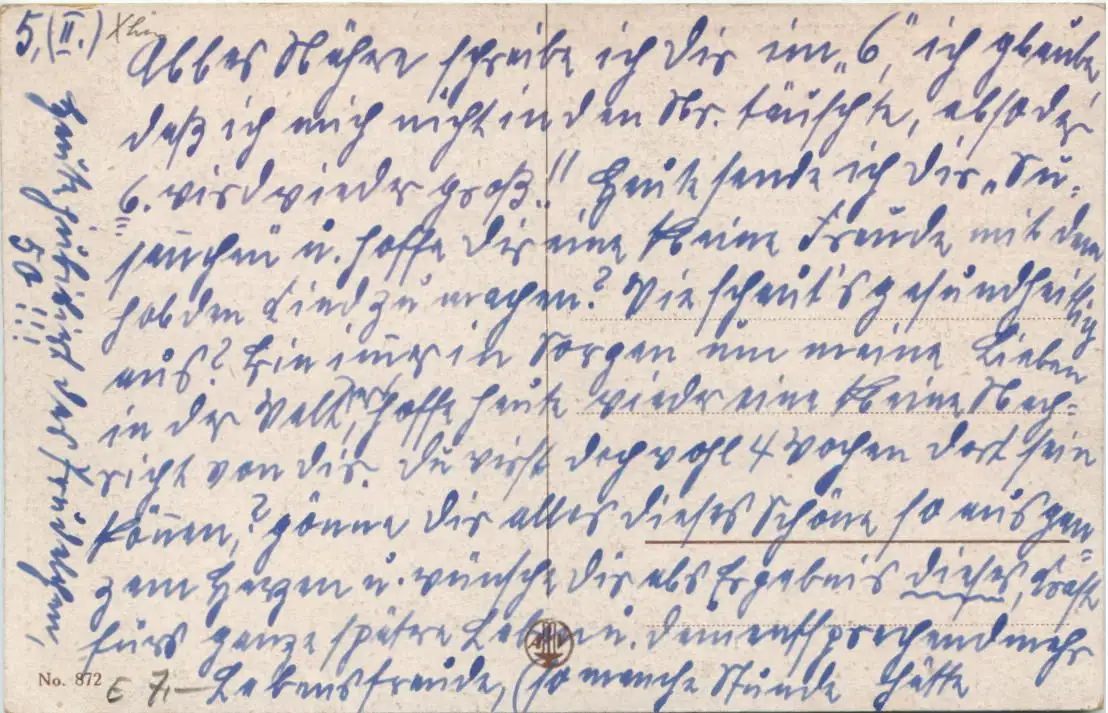 5, (II.)
Alles Nähere schreibe ich Dir im „6“, ich glaube,
daß ich mich nicht in den Nr. täuschte, also der
„6. wird wieder groß“!! Heute sende ich Dir „Su-
sannchen“ u. hoffe Dir eine kleine Freude mit dem
holden Kind zu machen? Wie schaut's gesundheitlich
aus? Bin immer in Sorgen um meine Lieben
in der Welt, hoffe heute wieder eine kleine Nach-
richt von Dir. Du wirst doch wohl 4 Wochen dort sein
können,? gönne Dir alles dieses Schöne so aus gan-
zem Herzen u. wünsche Dir als Ergebnis dieses, Kraft
fürs ganze spätere Leben u. dementsprechend mehr
Lebensfreude, (so manche Stunde hätte
Heute jubiliert das
50 !!!
No. 872
E 7,—